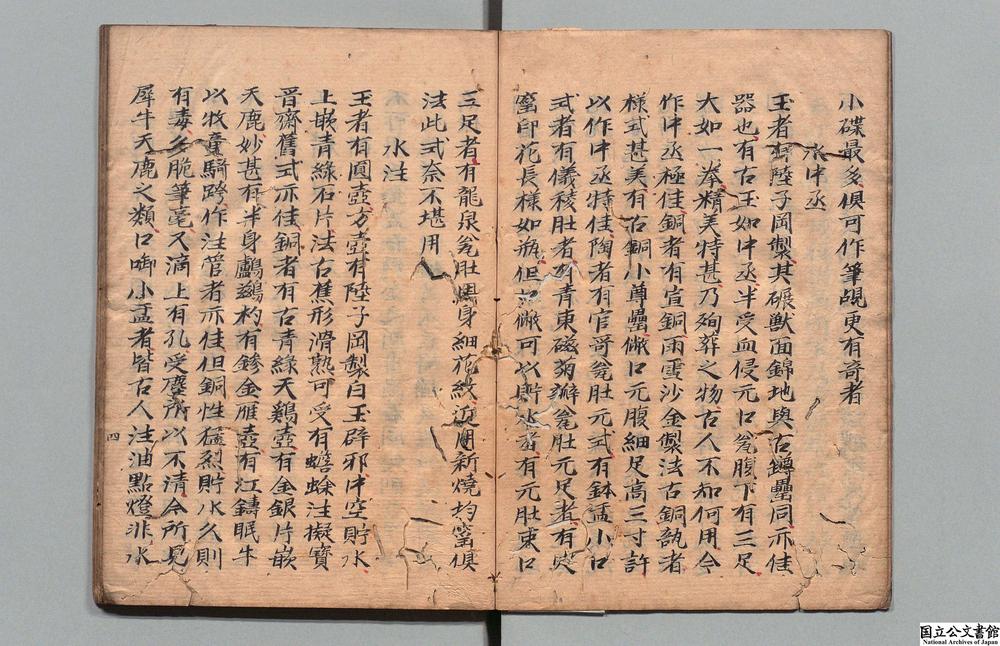 小碟最多俱可作筆覘更有奇者
水中丞
玉者有陸子岡製其碾獸面錦地與古鐏罍同亦佳
器也有古玉如中丞半受血侵元口瓮腹下有三足
大如一拳精美特甚乃殉葬之物古人不知何用今
作中丞極佳銅者有宣銅雨雪沙金製法古銅瓿者
樣式甚美有古銅小尊罍僘口元腹細足高三寸許
以作中丞特佳陶者有官哥瓮肚元式有鉢盂小口
式者有儀稜肚者有青東磁菊瓣瓮肚元足者有
窑印花長樣如瓶但口僘可以貯水者有元肚束口
三足者有龍泉瓮肚周身細花紋近用新燒均窑俱
法此式奈不堪用
水注
玉者有圓壺方壺有陸子岡製白玉辟邪中空貯水
上嵌青綠石片法古蕉形滑熟可受有蟾蜍注擬寶
晉齋舊式亦佳銅者有古青綠天鷄壺有金銀片嵌
天鹿妙甚有半身鸕鷀杓有鎏金雁壺有江鑄眠牛
以牧童騎跨作注管者亦佳但銅性猛烈貯水久則
有毒多脆筆毫又滴上有孔受塵所以不清今所見
犀牛天鹿之類口啣小盂者皆古人注油點燈非水
四
国立公文書館
National Archives of Japan